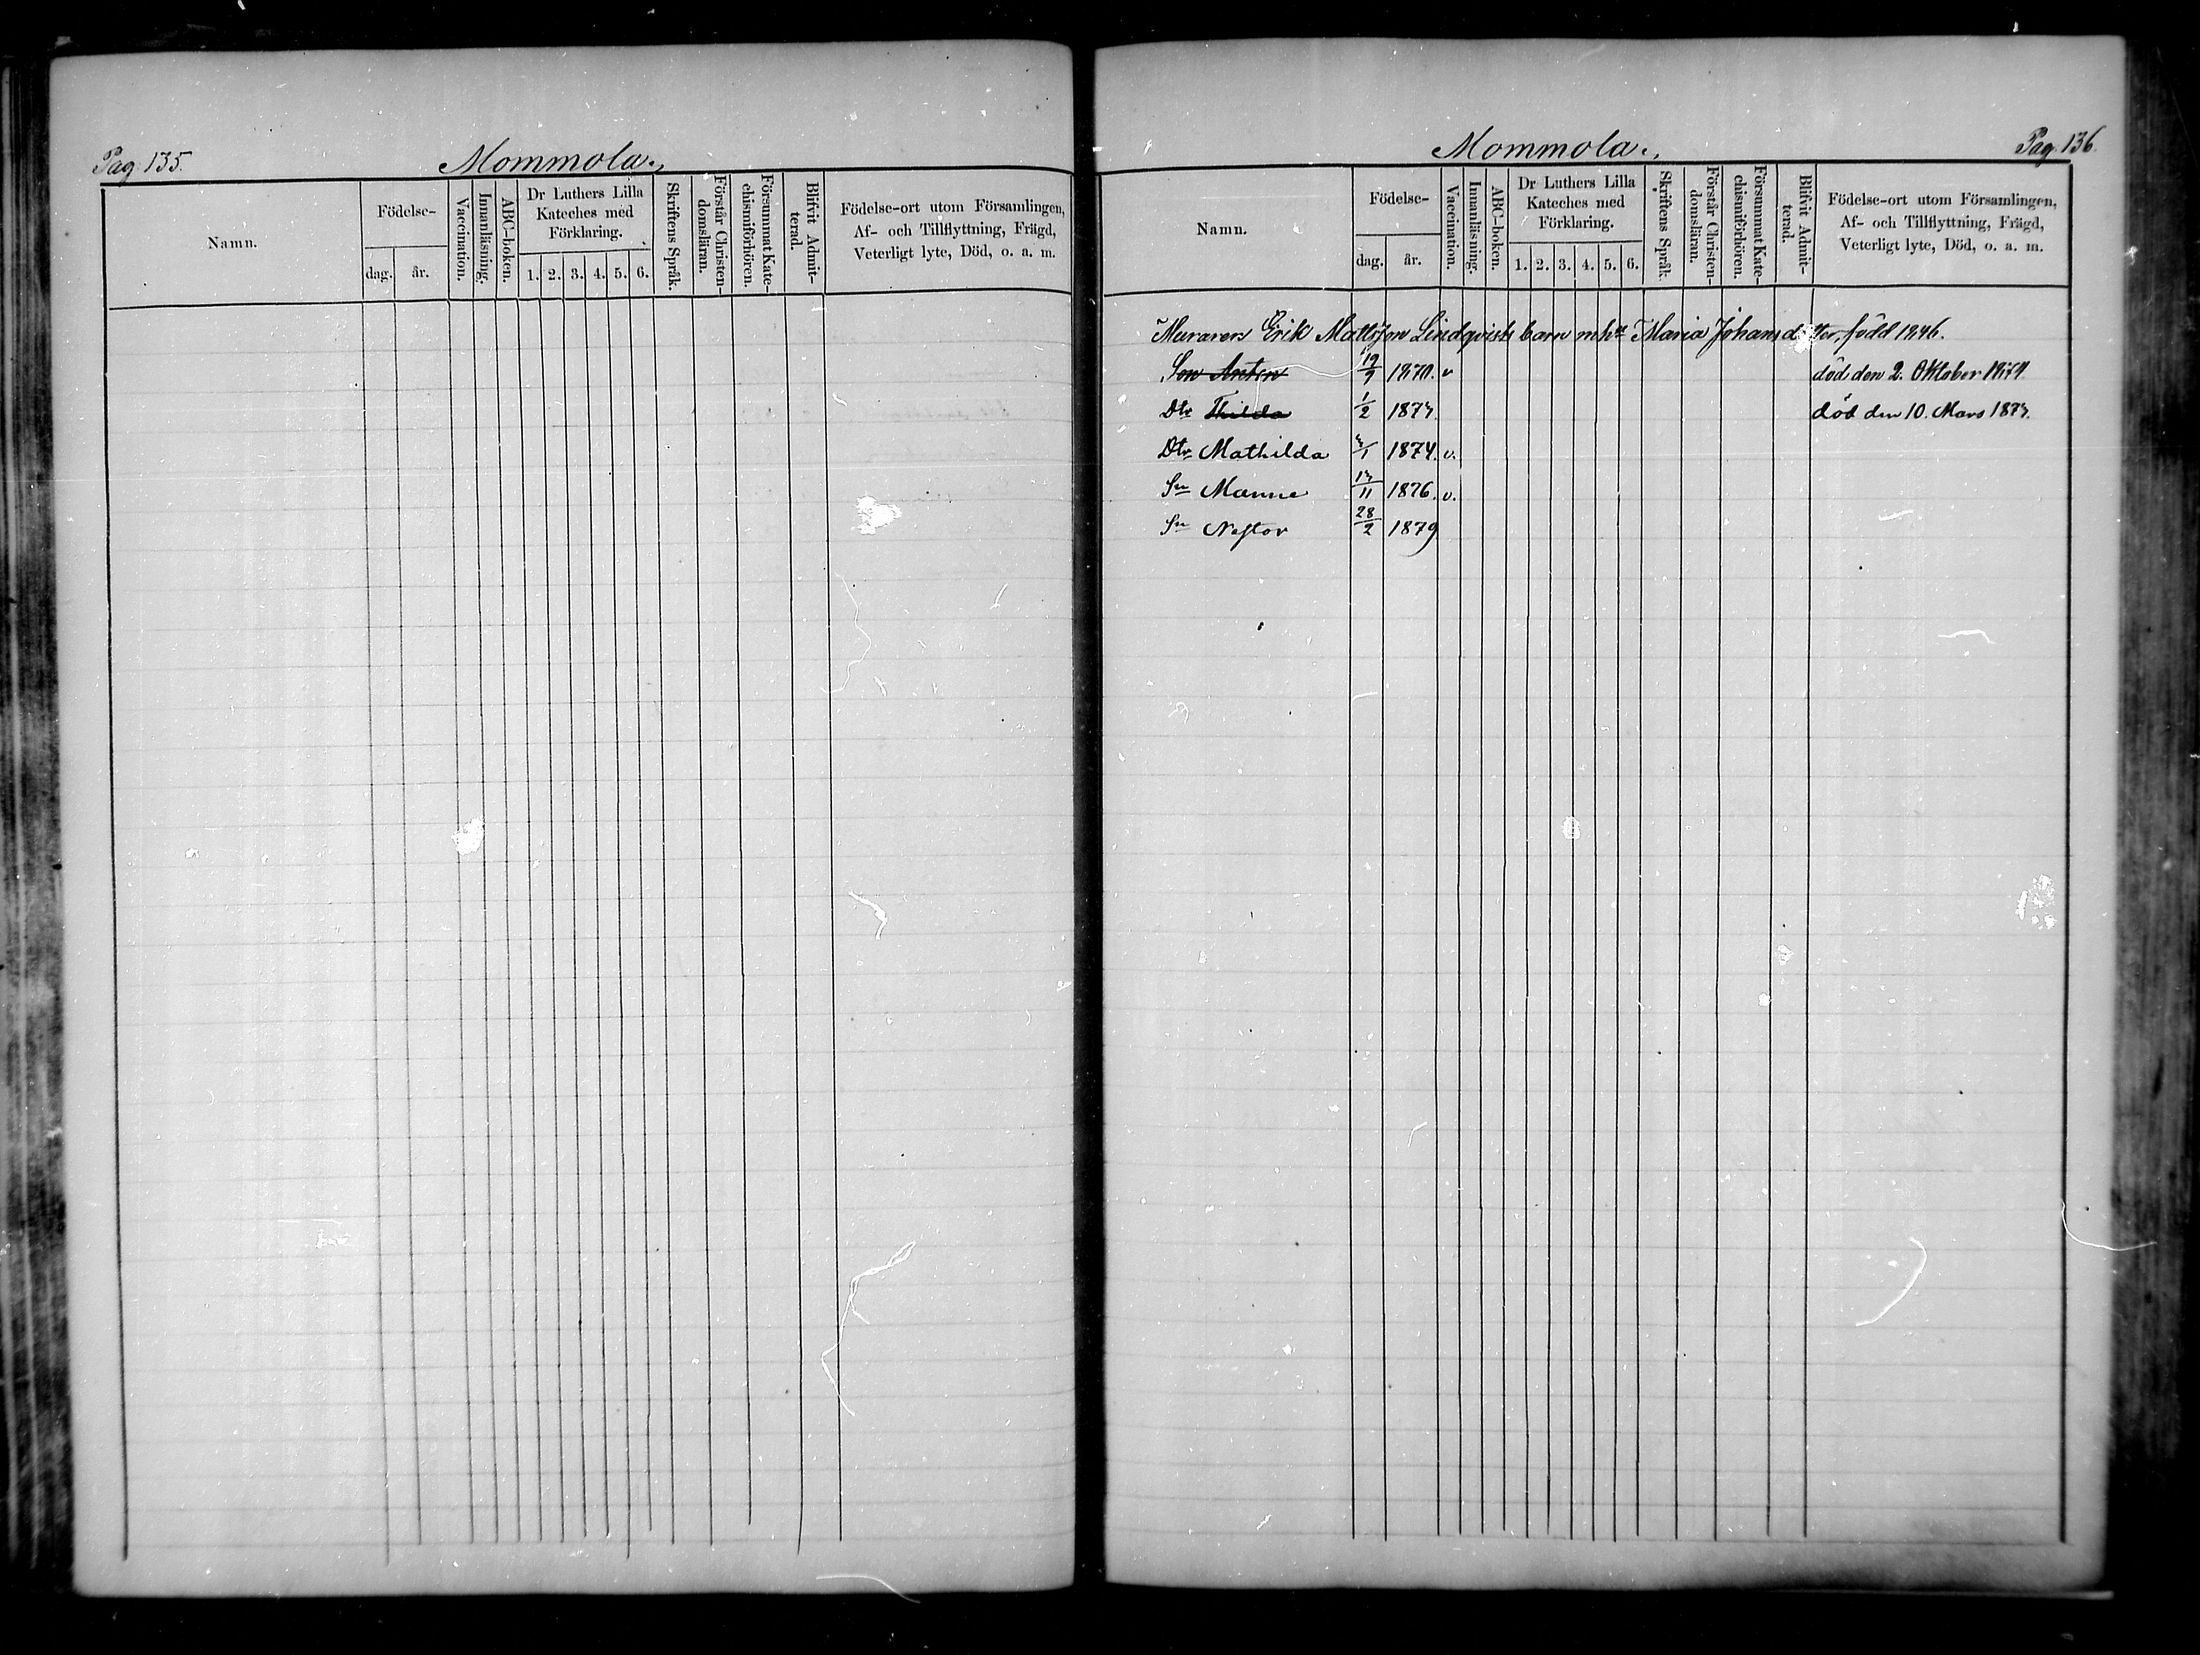 Pag. 135.
Mommola.
Namn.
Födelse-
dag.
år.
Vaccination.
Innanläsning.
ABC-boken.
Dr Luthers Lilla
Kateches med
Förklaring.
1. 2. 3. 4. 5. 6.
Skriftens Språk.
Förstår Christen-
domsläran.
Försummat Kate-
chismiförhören.
Blifvit Admit-
terad.
Födelse-ort utom Församlingen,
Af- och Tillflyttning, Frägd,
Veterligt lyte, Död, o. a. m.
Mommola.
Pag. 136.
Namn.
Födelse-
dag.
år.
Vaccination.
Innanläsning.
ABC-boken.
Dr Luthers Lilla
Kateches med
Förklaring.
1. 2. 3. 4. 5. 6.
Skriftens Språk.
Förstår Christen-
domsläran.
Försummat Kate-
chismiförhören.
Blifvit Admit-
terad.
Födelse-ort utom Församlingen,
Af- och Tillflyttning, Frägd,
Veterligt lyte, Död, o. a. m.
Murarers Erik Mattsson Lindqvists barn m hu Maria Johansdotter, född 1846.
Son Anton 19/9 1870. v död den 2. Oktober
Dtr Thilda 1/2 1873. död den 10. Mars 1873.
Dtr Mathilda 3/1 1874. v.
Sn Manne 13/11 1876. v.
Sn Nestor 28/2 1879